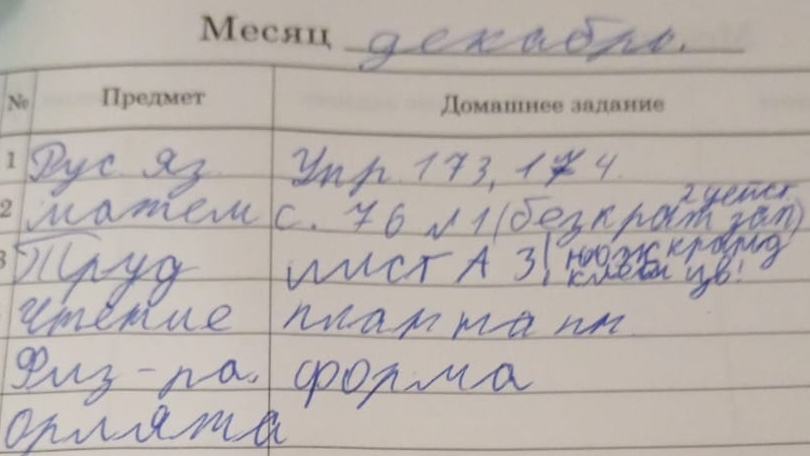 Месяц декабрь.
№ Предмет Домашнее задание
1 Рус. яз. Упр. 173, 174.
2 матем с. 76 №1 (без крат зап) 2 дейст
3 Труд лист А 3, клей цв!
Чтение план на пн.
Физ-ра. форма
орлята